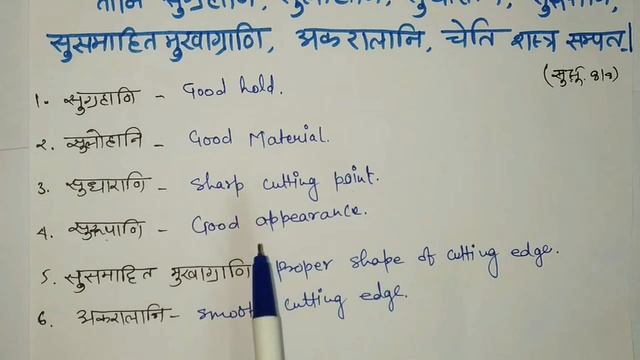 तानि सुग्रहाणि, सुलोहानि, सुधाराणि, सुरूपाणि,
सुसमाहित मुखाग्राणि, अकरालानि, चेति शस्त्र सम्पत्।
(सु.सू. 8/9)
1. सुग्रहाणि - Good hold.
२. सुलोहानि - Good Material.
3. सुधाराणि - Sharp cutting point.
4. सुरूपाणि - Good appearance.
5. सुसमाहित मुखाग्राणि Proper shape of cutting edge.
6. अकरालानि - smooth cutting edge.